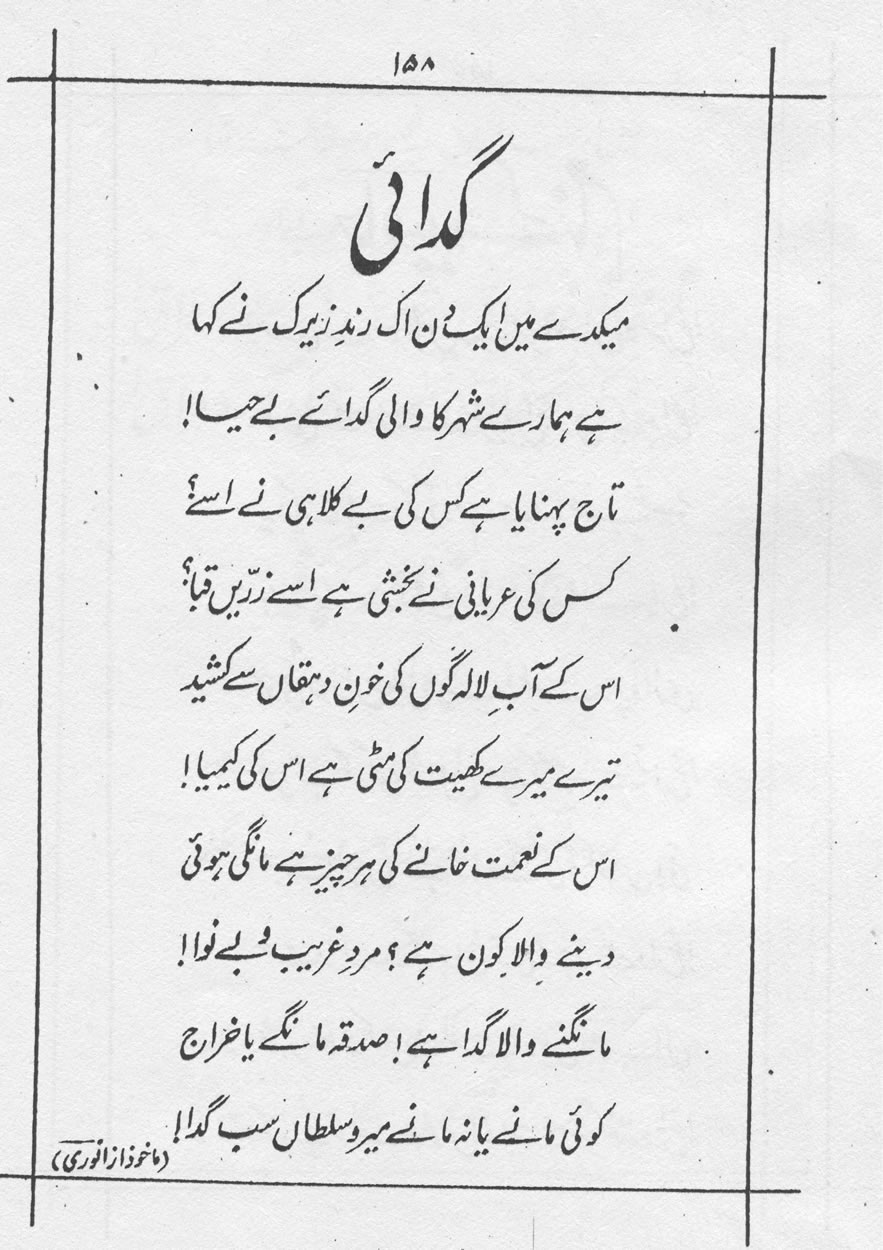 ۱۵۸
گدائی
میکدے میں ایک دن اک رندِ زیرک نے کہا
ہے ہمارے شہر کا والی گدائے بے حیا!
تاج پہنایا ہے کس کی بے کلاہی نے اسے؟
کس کی عریانی نے بخشی ہے اسے زرّیں قبا؟
اس کے آبِ لالہ گوں کی خونِ دہقاں سے کشید
تیرے میرے کھیت کی مٹی ہے اس کی کیمیا!
اس کے نعمت خانے کی ہر چیز ہے مانگی ہوئی
دینے والا کون ہے؟ مردِ غریب و بے نوا!
مانگنے والا گدا ہے! صدقہ مانگے یا خراج
کوئی مانے یا نہ مانے میر و سلطاں سب گدا!
(ماخوذ از انوری)